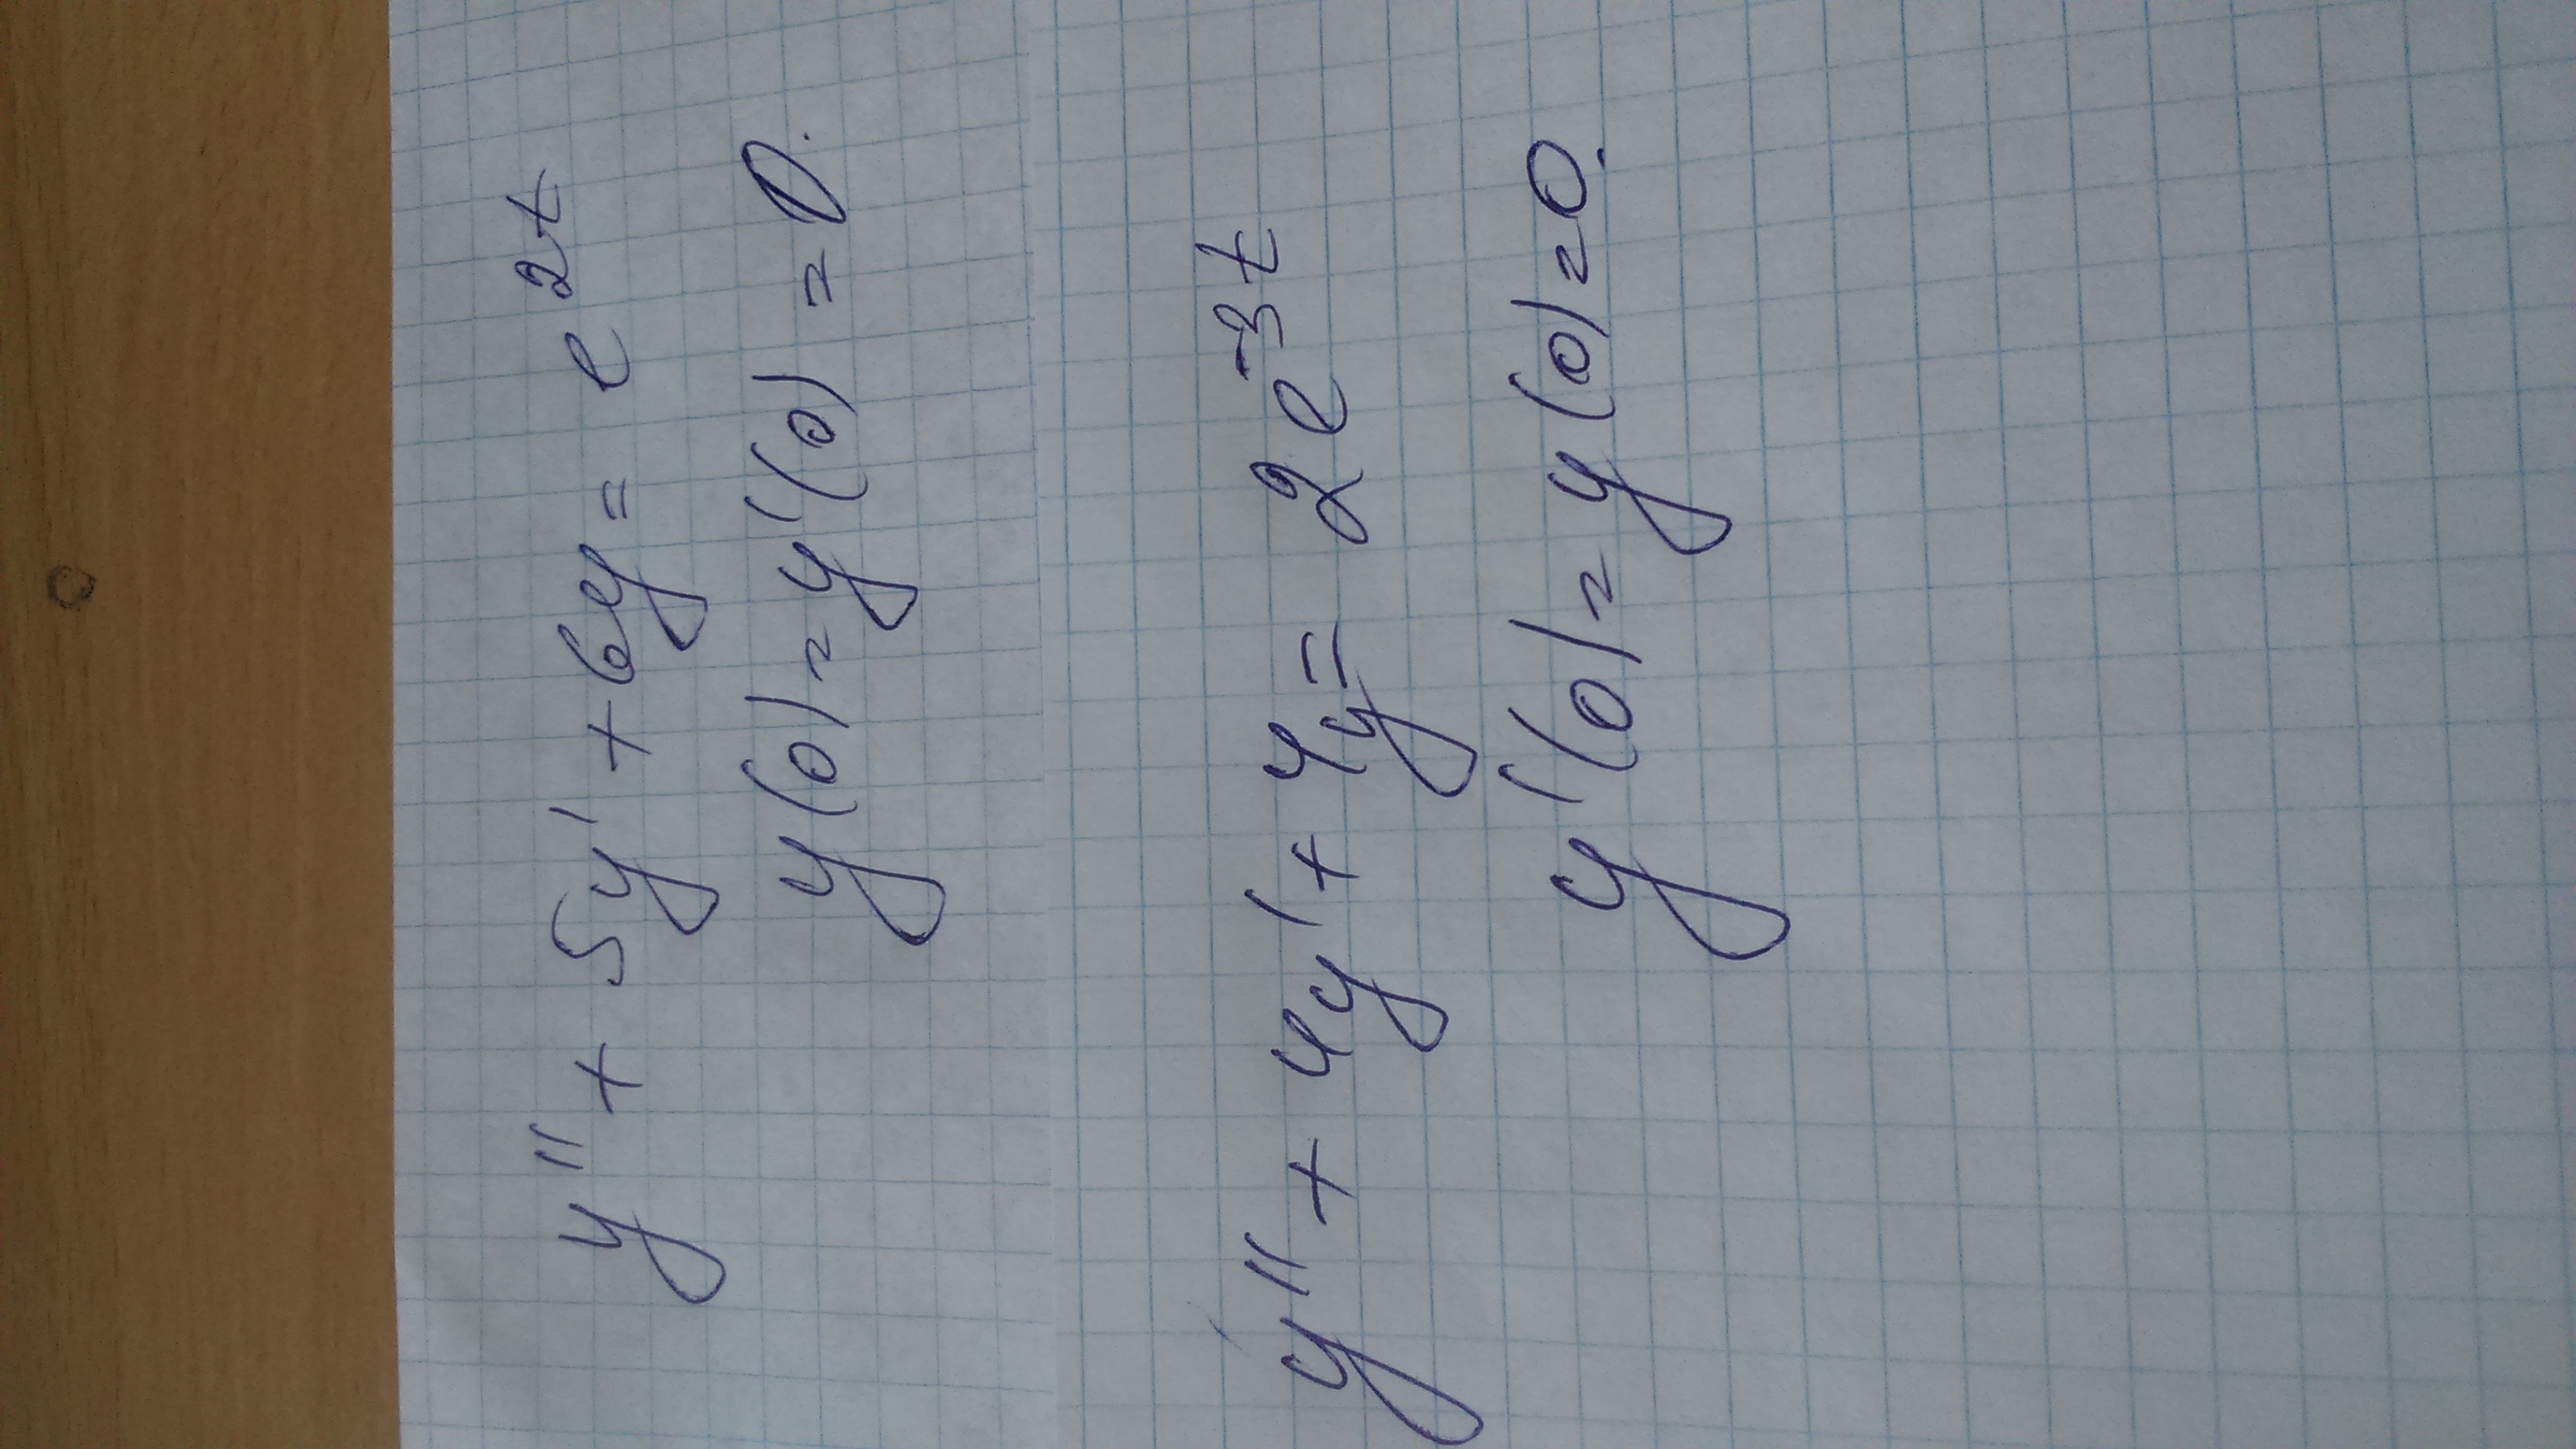 y'' + 5y' + 6y = e^{2t}
y(0) = y'(0) = 0.
y'' + 4y' + 4y = 2e^{-3t}
y'(0) = y(0) = 0.